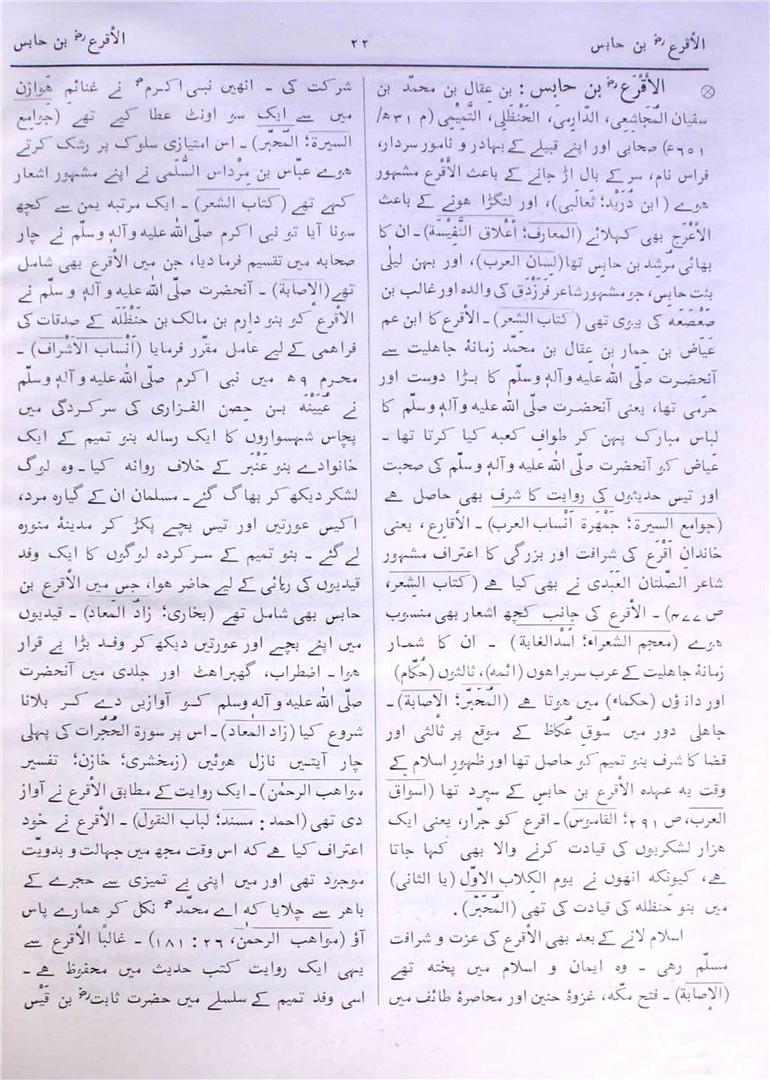 الأقرع رض بن حابس
۲۲
الأقرع رض بن حابس
الأَقْرَع رض بن حابِس : بن عِقال بن محمّد بن
سفیان المُجاشِعی، الدّارِمی، الحَنْظَلی، التَّمِیْمی (م ۳۱ھ/
۶۵۱ء) صحابی اور اپنے قبیلے کے بہادر و نامور سردار،
فراس نام، سر کے بال اڑ جانے کے باعث الأقْرع مشہور
ہوے (ابن دُرَید؛ ثَعالبی)، اور لنگڑا ہونے کے باعث
الأَعْرَج بھی کہلائے (المعارف؛ أعْلاق النَّفِیْسَة) ۔ ان کا
بھائی مَرْثد بن حابِس تھا (لسان العرب)، اور بہن لیلٰی
بنت حابس، جو مشہور شاعر فَرَزْدَق کی والدہ اور غالب بن
صَعْصَعَہ کی بیوی تھی (کتاب الشعر) ۔ الأقرع کا ابن عم
عِیَاض بن حِمار بن عِقال بن محمّد زمانۂ جاہلیت سے
آنحضرت صلّی اللہ علیہ وآلہٖ وسلّم کا بڑا دوست اور
حِرْمی تھا، یعنی آنحضرت صلّی اللہ علیہ وآلہٖ وسلّم کا
لباس مبارک پہن کر طوافِ کعبہ کیا کرتا تھا ۔
عیاض کو آنحضرت صلّی اللہ علیہ وآلہٖ وسلّم کی صحبت
اور تیس حدیثوں کی روایت کا شرف بھی حاصل ہے
(جوامع السیرة؛ جَمْھَرة أنْساب العرب) ۔ الأقارِع، یعنی
خاندانِ أقْرَع کی شرافت اور بزرگی کا اعتراف مشہور
شاعر الصَّلَتان العَبْدی نے بھی کیا ہے (کتاب الشعر،
ص ۴۷۷) ۔ الأقرع کی جانب کچھ اشعار بھی منسوب
ہوے (معجم الشعراء؛ أسدالغابة) ۔ ان کا شمار
زمانۂ جاہلیت کے عرب سربراہوں (ائمہ)، ثالثوں (حُکّام)
اور داناؤں (حکماء) میں ہوتا ہے (المُحَبَّر؛ الإصابة) ۔
جاہلی دور میں سُوقِ عُکاظ کے موقع پر ثالثی اور
قضا کا شرف بنو تمیم کو حاصل تھا اور ظہورِ اسلام کے
وقت یہ عہدہ الأقرع بن حابس کے سپرد تھا (اسواق
العرب، ص ۲۹۱؛ القاموس) ۔ اقرع کو جَرّار، یعنی ایک
ہزار لشکریوں کی قیادت کرنے والا بھی کہا جاتا
ہے، کیونکہ انھوں نے یوم الکِلاب الاوّل (یا الثانی)
میں بنو حنظلہ کی قیادت کی تھی (المُحَبَّر).
اسلام لانے کے بعد بھی الأقرع کی عزت و شرافت
مسلّم رہی ۔ وہ ایمان و اسلام میں پختہ تھے
(الإصابة) ۔ فتح مکّہ، غزوۂ حنین اور محاصرۂ طائف میں
شرکت کی ۔ انھیں نبی اکرم ؐ نے غنائمِ ھَوازِن
میں سے ایک سو اونٹ عطا کیے تھے (جَوامِع
السیرة؛ المُحَبَّر) ۔ اس امتیازی سلوک پر رشک کرتے
ہوے عبّاس بن مِرْداس السُّلَمی نے اپنے مشہور اشعار
کہے تھے (کتاب الشعر) ۔ ایک مرتبہ یمن سے کچھ
سونا آیا تو نبی اکرم صلّی اللہ علیہ وآلہٖ وسلّم نے چار
صحابہ میں تقسیم فرما دیا، جن میں الأقرع بھی شامل
تھے (الإصابة) ۔ آنحضرت صلّی اللہ علیہ و آلہٖ و سلّم نے
الأقرع کو بنو دارِم بن مالک بن حَنْظَلَہ کے صدقات کی
فراہمی کے لیے عامل مقرّر فرمایا (أنْساب الأشْراف) ۔
محرم ۹ھ میں نبی اکرم صلّی اللہ علیہ وآلہٖ وسلّم
نے عُیَیْنَہ بن حِصن الفزاری کی سرکردگی میں
پچاس شہسواروں کا ایک رسالہ بنو تمیم کے ایک
خانوادے بنو عَنْبَر کے خلاف روانہ کیا ۔ وہ لوگ
لشکر دیکھ کر بھاگ گئے ۔ مسلمان ان کے گیارہ مرد،
اکیس عورتیں اور تیس بچے پکڑ کر مدینۂ منورہ
لے گئے ۔ بنو تمیم کے سرکردہ لوگوں کا ایک وفد
قیدیوں کی رہائی کے لیے حاضر ہوا، جس میں الأقرع بن
حابس بھی شامل تھے (بخاری؛ زادُ المَعاد) ۔ قیدیوں
میں اپنے بچے اور عورتیں دیکھ کر وفد بڑا بے قرار
ہوا ۔ اضطراب، گھبراہٹ اور جلدی میں آنحضرت
صلّی اللہ علیہ و آلہٖ وسلم کو آوازیں دے کر بلانا
شروع کیا (زاد المعاد) ۔ اس پر سورة الحُجُرات کی پہلی
چار آیتیں نازل ہوئیں (زمخشری؛ خازن؛ تفسیر
مواھب الرحمٰن) ۔ ایک روایت کے مطابق الأقرع نے آواز
دی تھی (احمد : مسند؛ لباب النقول) ۔ الأقرع نے خود
اعتراف کیا ہے کہ اس وقت مجھ میں جہالت و بدویّت
موجود تھی اور میں اپنی بے تمیزی سے حجرے کے
باہر سے چلایا کہ اے محمّد ؐ نکل کر ہمارے پاس
آؤ (مواھب الرحمٰن، ۲۶ : ۱۸۱) ۔ غالبًا الأقرع سے
یہی ایک روایت کتب حدیث میں محفوظ ہے ۔
اسی وفد تمیم کے سلسلے میں حضرت ثابت رض بن قَیْس